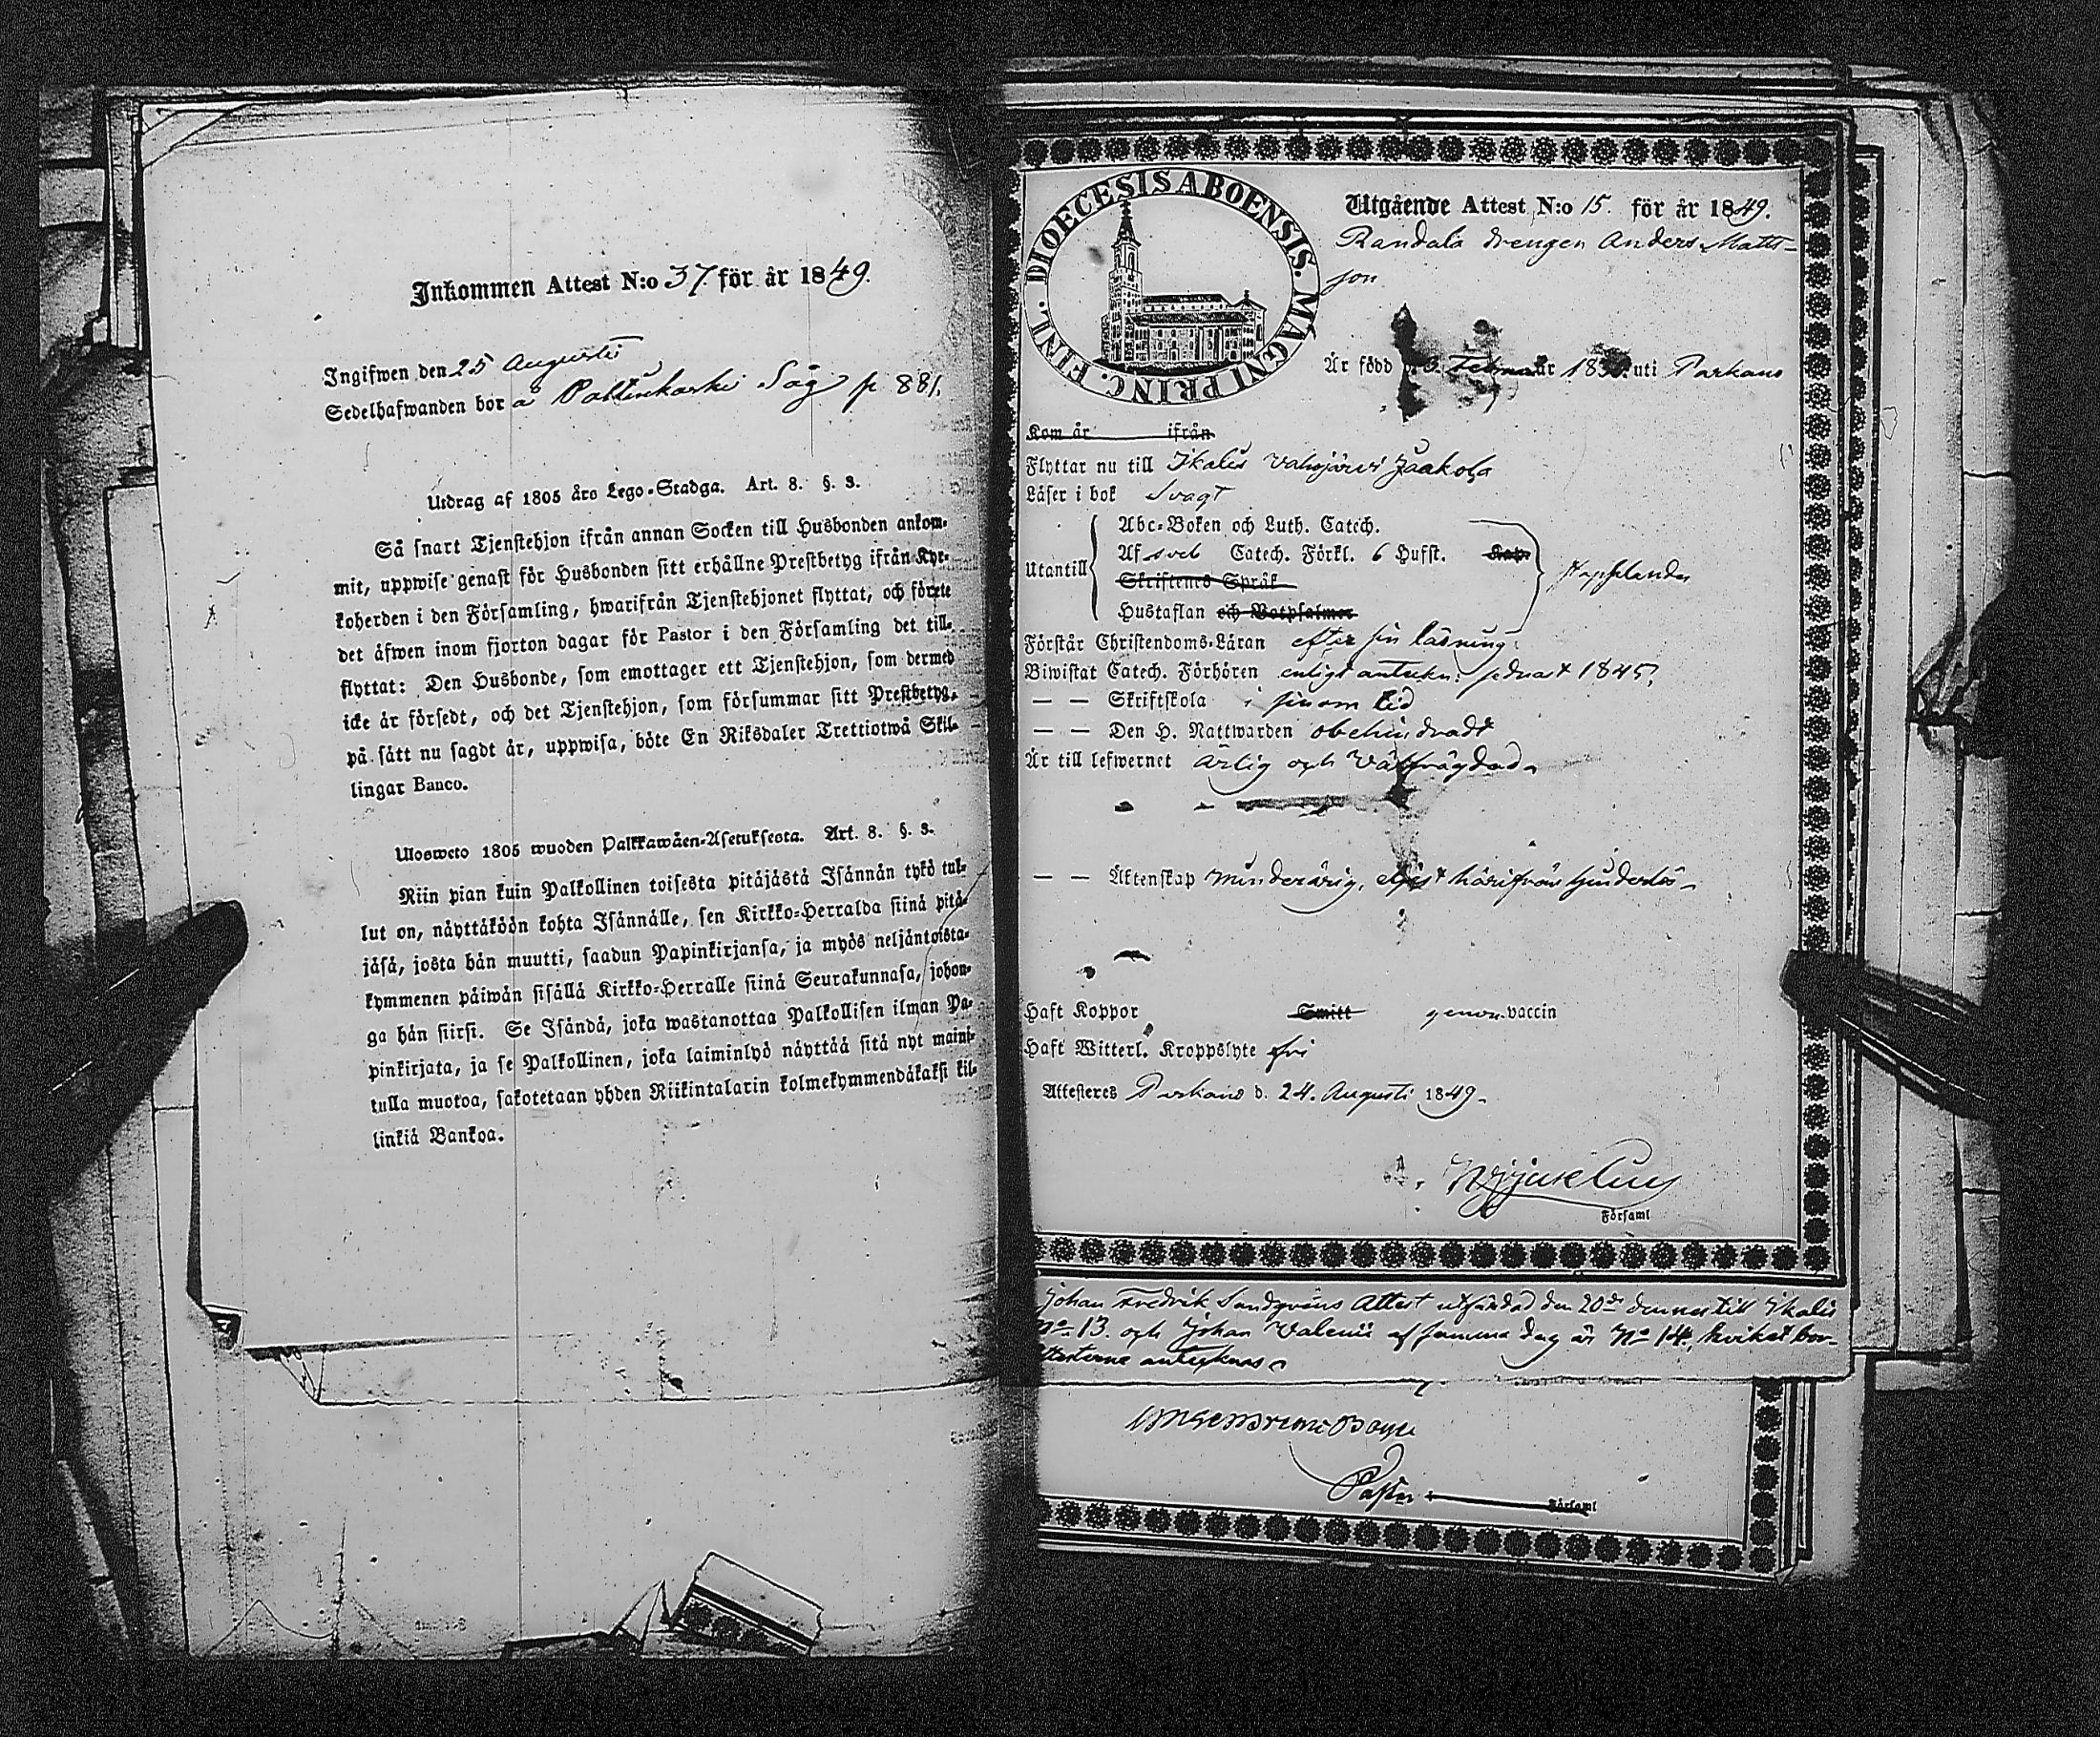 Inkommen Attest N:o 37. för år 1849.
Ingifwen den 25 Augusti
Sedelhafwanden bor å Såg p 881.
Utdrag af 1805 års Lego-Stadga. Art. 8. §. 3.
Så snart Tjenstehjon ifrån annan Socken till Husbonden ankom-
mit, uppwise genast för Husbonden sitt erhållne Prestbetyg ifrån Kyr-
koherden i den Församling, hwarifrån Tjenstehjonet flyttat, och förete
det äfwen inom fjorton dagar för Pastor i den Församling det till-
flyttat: Den Husbonde, som emottager ett Tjenstehjon, som dermed
icke är försedt, och det Tjenstehjon, som försummar sitt Prestbetyg,
på sätt nu sagdt är, uppwisa, böte En Riksdaler Trettiotwå Skil-
lingar Banco.
Ulosweto 1805 wuoden Palkkawäen-Asetuksesta. Art. 8. §. 3.
Niin pian kuin Palkollinen toisesta pitäjästä Isännän tykö tul-
lut on, näyttäköön kohta Isännälle, sen Kirkko-Herralda siinä pitä-
jäsä, josta hän muutti, saadun Papinkirjansa, ja myös neljäntoista-
kymmenen päiwän sisällä Kirkko-Herralle siinä Seurakunnasa, johon-
ga hän siirsi. Se Isändä, joka wastanottaa Palkollisen ilman Pa-
pinkirjata, ja se Palkollinen, joka laiminlyö näyttää sitä nyt maini-
tulla muotoa, sakotetaan yhden Riikintalarin kolmekymmendäkaksi kil-
linkiä Bankoa.
DIOECESIS ABOENSIS. MAGNI PRINC. FINL.
Utgående Attest N:o 15. för år 1849.
Randala drengen Anders Matts-
son
Är född Februar 183 uti Parkano
Kom år ifrån
Flyttar nu till Ikalis Vahojärvi Jaakola
Läser i bok Svagt
Abc-Boken och Luth. Catech.
Af sveb Catech. Förkl. 6 Hufst.
Utantill
Skriftenes Språk
Hustaflan och Botpsalmer
Förstår Christendoms-Läran efter sin läsning.
Biwistat Catech. Förhören enligt anteckn. sednast 1845,
— — Skriftskola i sinom tid
— — Den H. Nattwarden obehindradt
Är till lefwernet ärlig och välfrägdad.
— — Äktenskap minderårig, härifrån hinderlös
Haft Koppor Smitt genom vaccin
Haft Witterl. Kroppslyte fri
Attesteres Parkano d. 24. Augusti 1849.
Församl
Johan Fredrik Sandqvists Attest utfärdad den 20de dennes till Ikalis
No 13. och Johan Valenii af samma dag är No 14, hvilket bor-
antecknas
Pastor
Församl